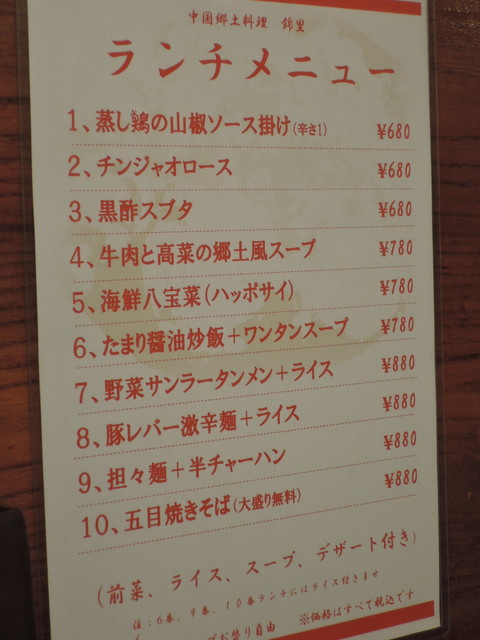 中国郷土料理 錦里
ランチメニュー
1、蒸し鶏の山椒ソース掛け(辛さ1) ¥680
2、チンジャオロース ¥680
3、黒酢スブタ ¥680
4、牛肉と高菜の郷土風スープ ¥780
5、海鮮八宝菜(ハッポサイ) ¥780
6、たまり醤油炒飯+ワンタンスープ ¥780
7、野菜サンラータンメン+ライス ¥880
8、豚レバー激辛麺+ライス ¥880
9、担々麺+半チャーハン ¥880
10、五目焼きそば(大盛り無料) ¥880
(前菜、ライス、スープ、デザート付き)
注:6番、9番、10番ランチにはライス付きませ
お替り自由 ※価格はすべて税込です